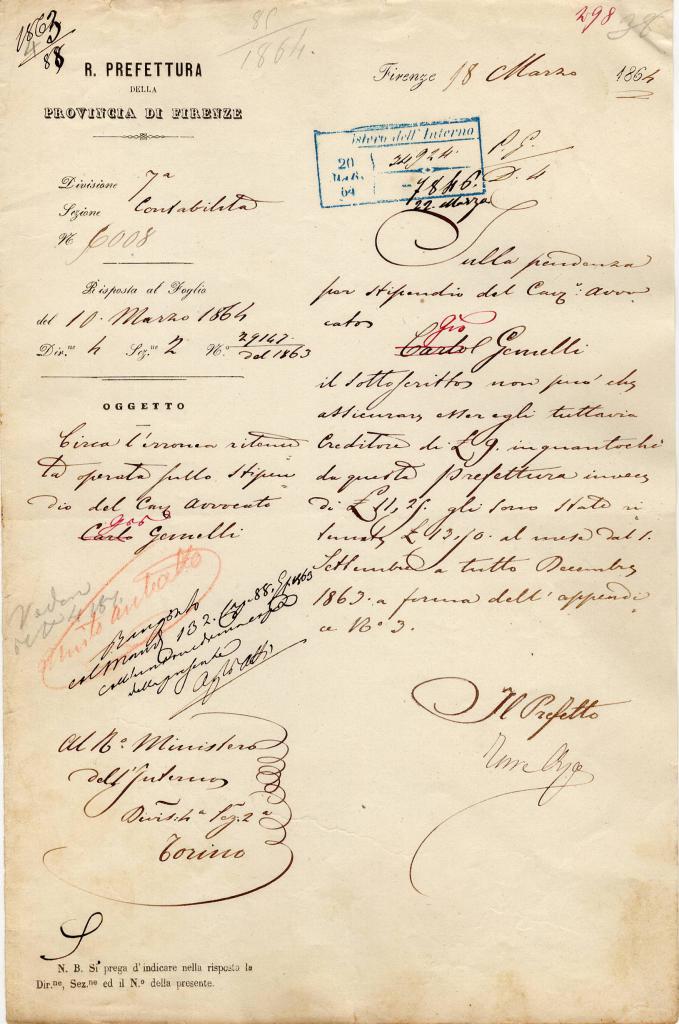 1863
4
88
85
1864.
298
38
R. PREFETTURA
DELLA
PROVINCIA DI FIRENZE
Firenze 18 Marzo 1864
istero dell'Interno
20
64
34924.
7846.
22. Marzo
P. G.
D. 4
Divisione 7a
Sezione Contabilità
N. 6008
Risposta al Foglio
del 10. Marzo 1864
Div.ne 4 Sez.ne 2 N.o 29147 del 1863
OGGETTO
Circa l'erronea ritenu
ta operata sullo stipen
dio del Cav Avvocato
Gio
Carlo Gemelli
Sulla pendenza
per stipendio del Cav.r Avvo
cato
Gio
Carlo Gemelli
il Sottoscritto non può che
assicurare esser egli tuttavia
Creditore di £ 9. inquantochè
da questa Prefettura invece
di £ 11,25. gli sono state ri
tenute £ 13,50. al mese dal 1.
Settembre a tutto Decembre
1863. a forma dell'appendi
ce N.o 3.
Il Prefetto
1863
della presente
Al R.o Ministero
dell'Interno
Divis: 4a Sez. 2a
Torino
N. B. Si prega d'indicare nella risposta la
Div.ne, Sez.ne ed il N.o della presente.